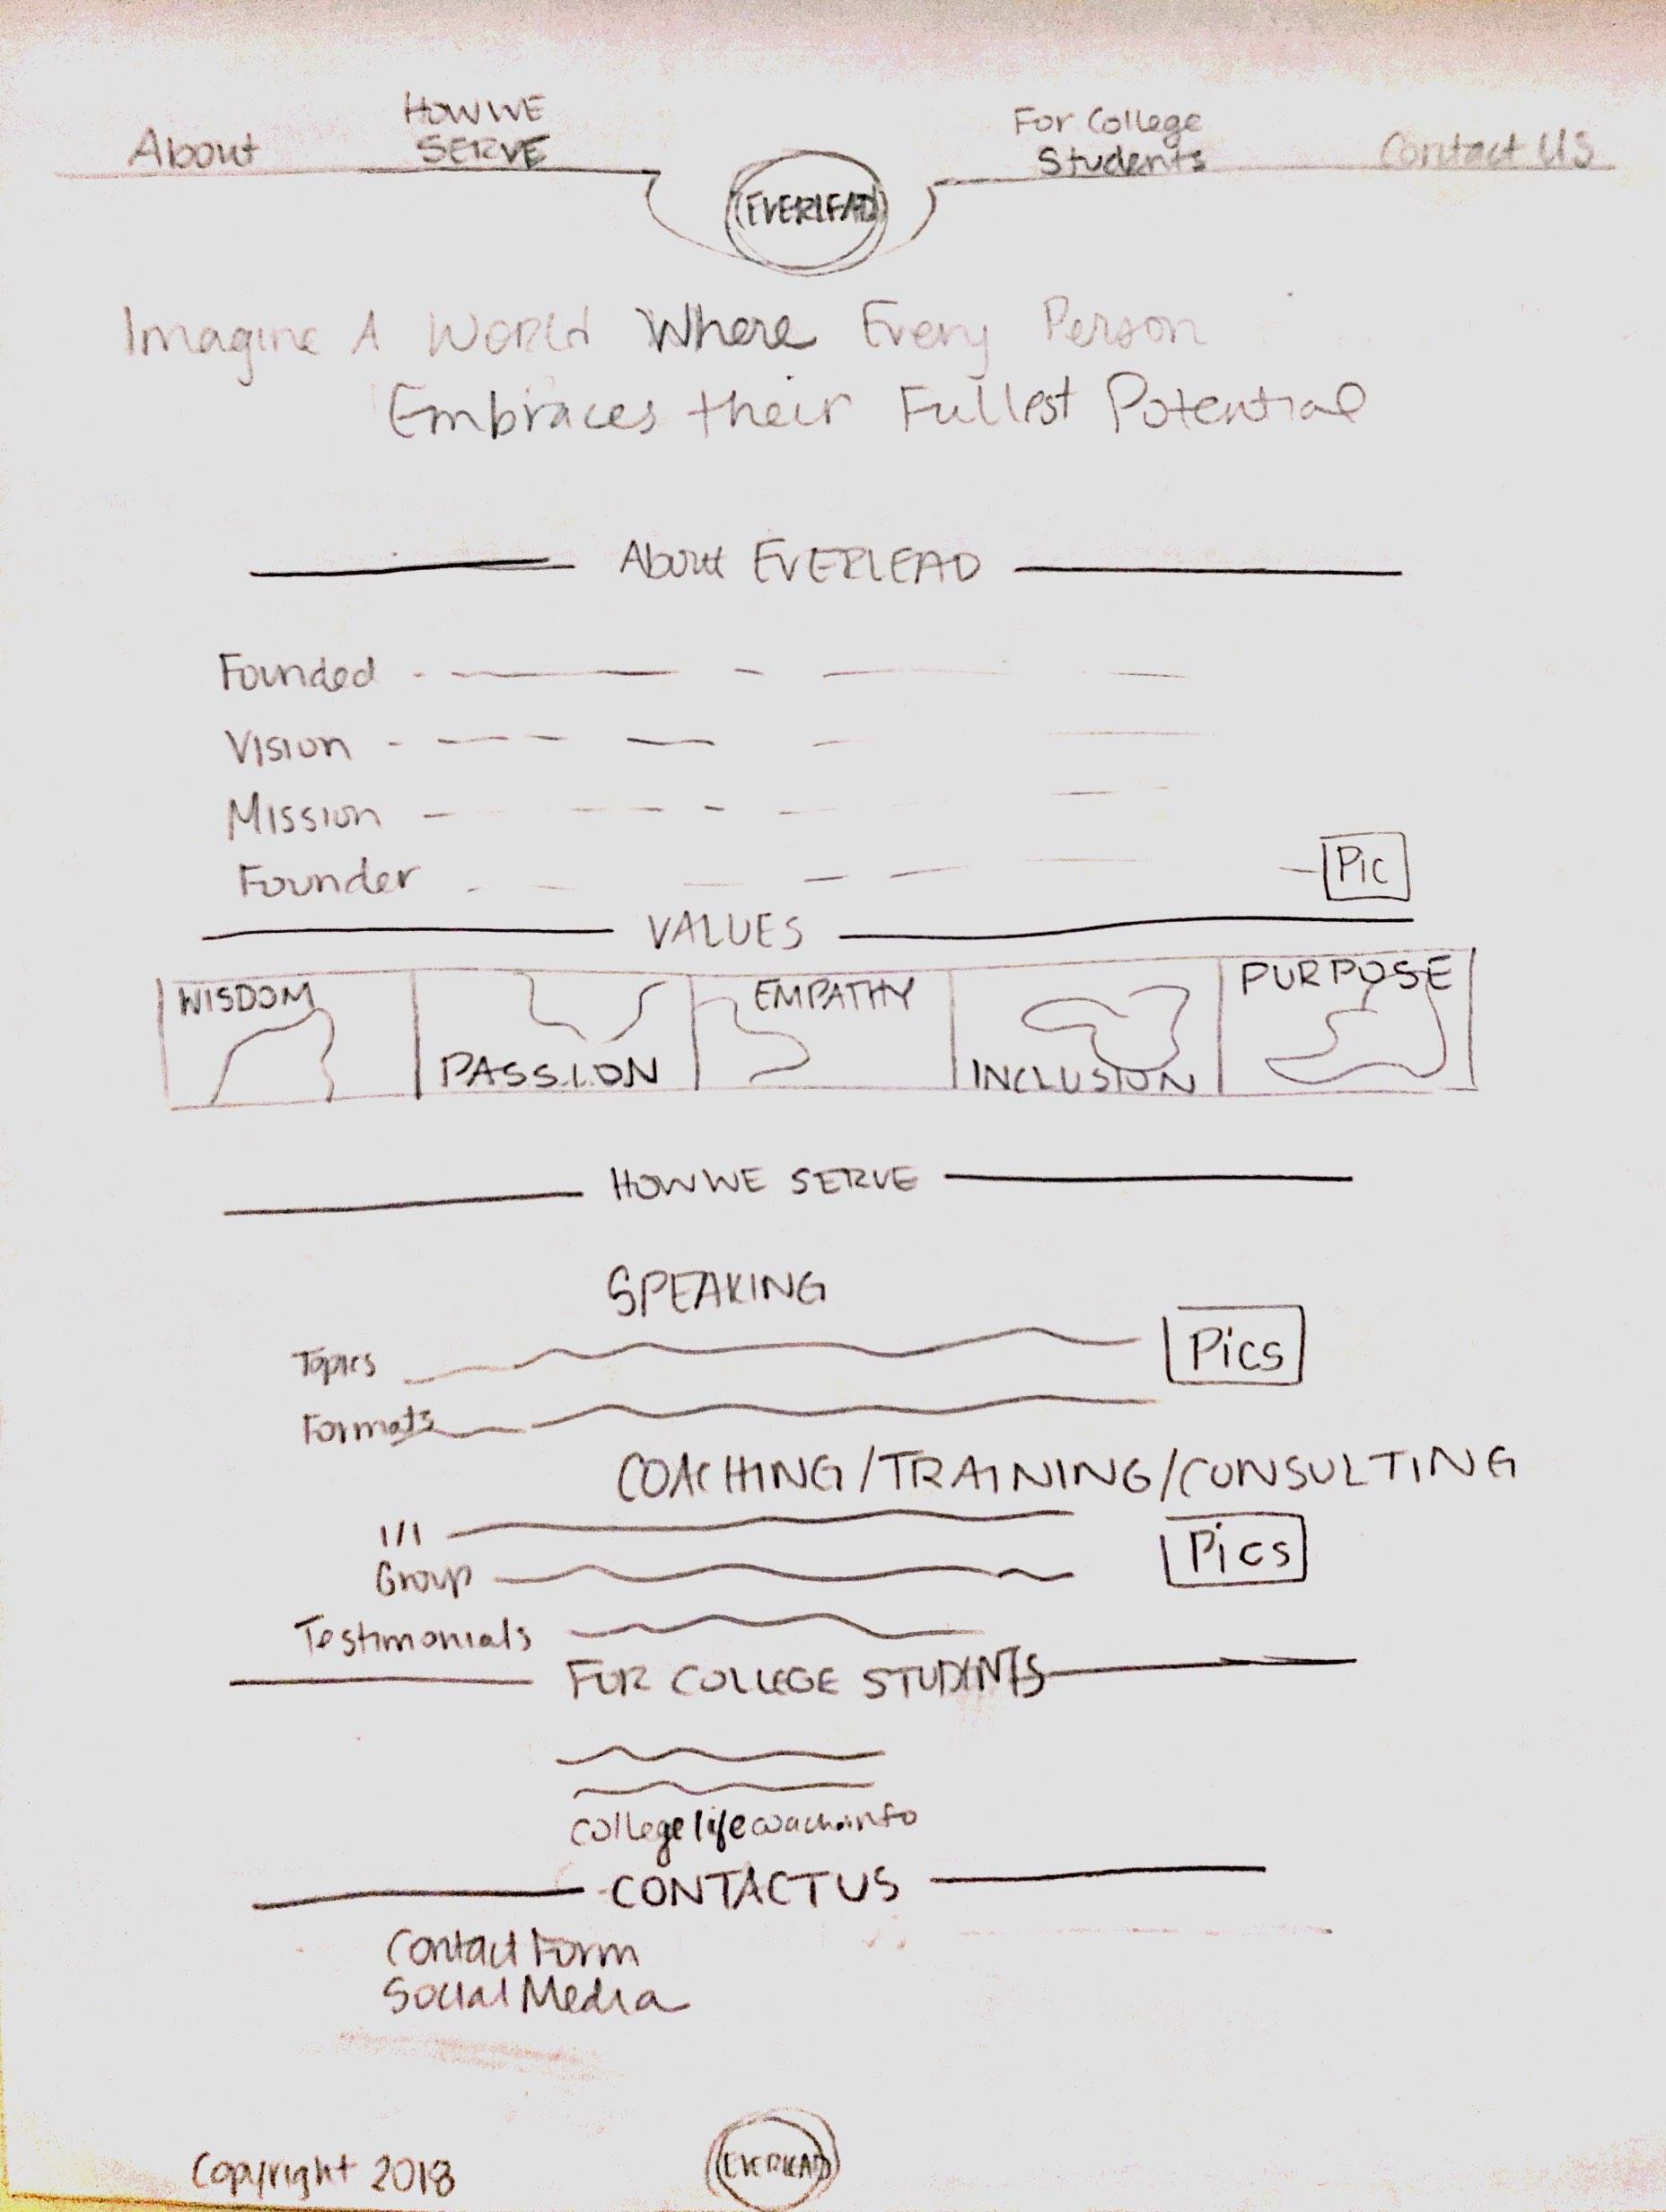 About
HOW WE
SERVE
EVERLEAD
For College
Students
Contact Us
Imagine A World Where Every Person
Embraces their Fullest Potential
About EVERLEAD
Founded
Vision
Mission
Founder
Pic
VALUES
WISDOM
PASSION
EMPATHY
INCLUSION
PURPOSE
HOW WE SERVE
SPEAKING
Topics
Pics
Formats
COACHING/TRAINING/CONSULTING
1/1
Group
Pics
Testimonials
FOR COLLEGE STUDENTS
collegelifecoach.info
CONTACT US
Contact Form
Social Media
Copyright 2018
EVERLEAD